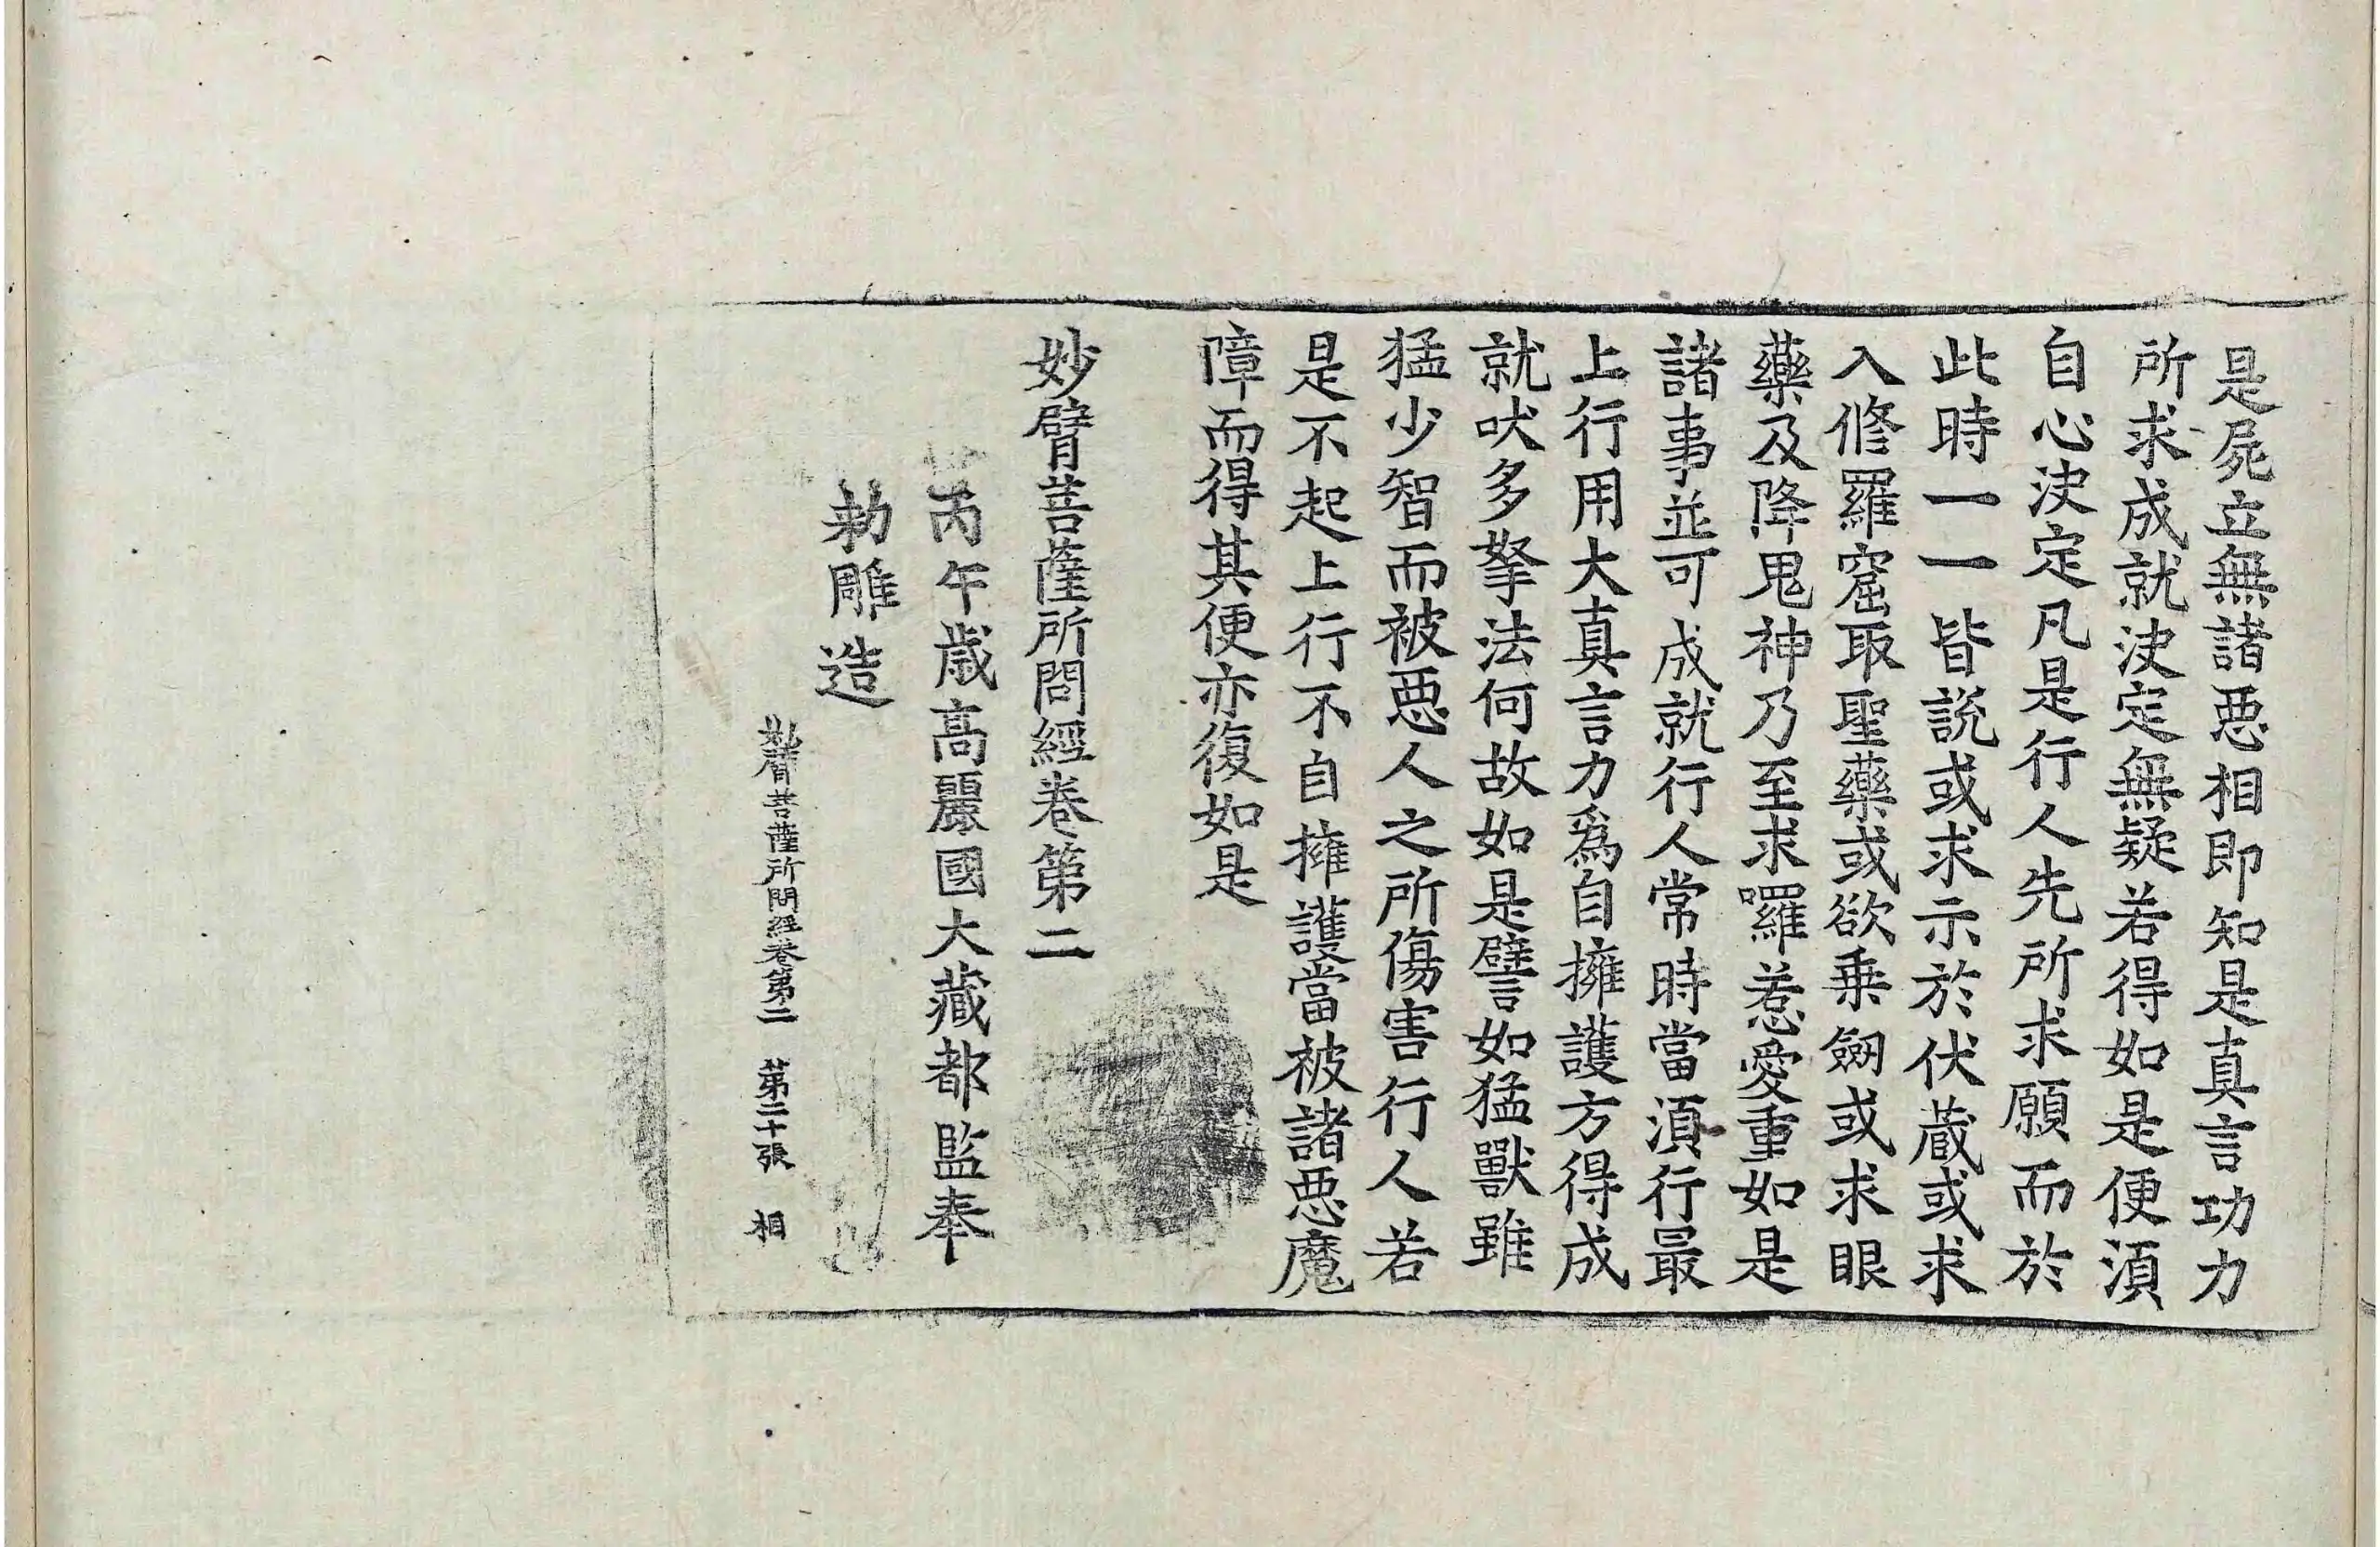 是屍立無諸惡相即知是真言功力
所求成就決定無疑若得如是便湏
自心決定凡是行人先所求願而於
此時一一皆說或求示於伏蔵或求
入修羅窟取聖藥或欲乗劒或求眼
藥及降鬼神乃至求囉惹愛重如是
諸事並可成就行人常時當湏行最
上行用大真言力爲自擁護方得成
就吠多拏法何故如是譬如猛獸雖
猛少智而被惡人之所傷害行人若
是不起上行不自擁護當被諸惡魔
障而得其便亦復如是
妙臂菩薩所問經卷第二
丙午歲高麗國大藏都監奉
勅雕造
妙臂菩薩所問經卷第二 第二十張 相